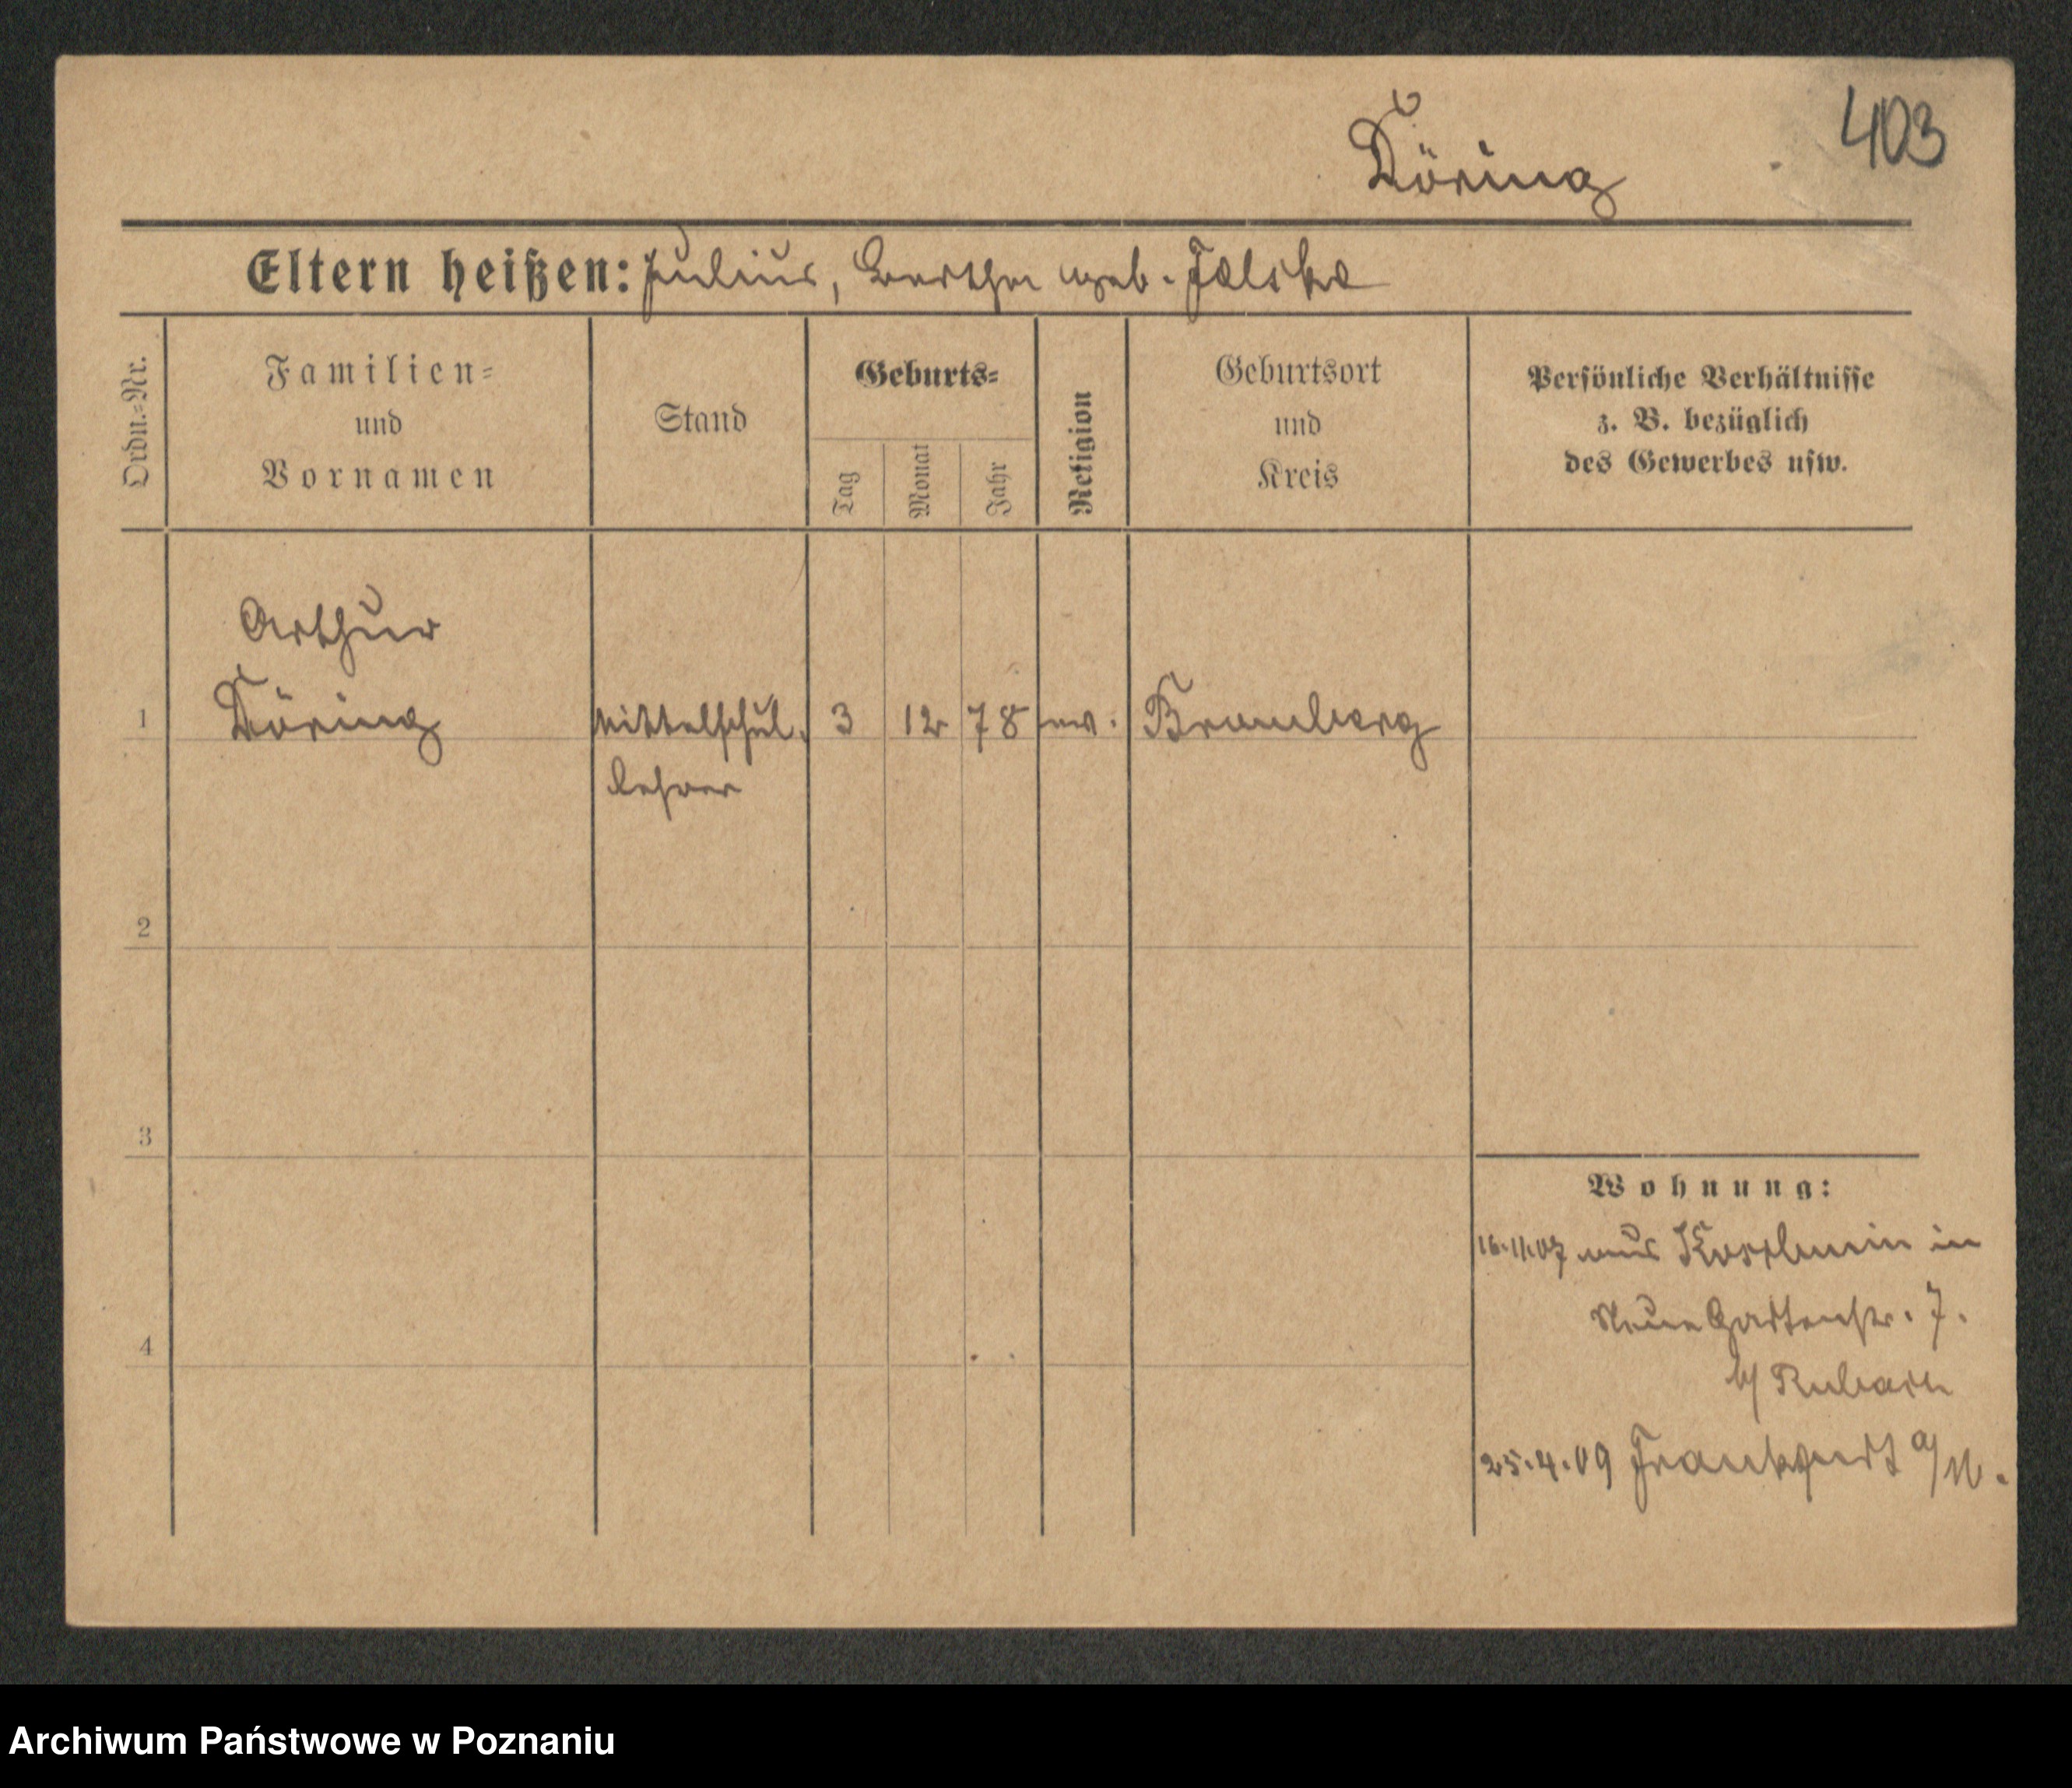 403
Döring
Eltern heißen: Julius, Bertha geb. Falska
Ordn.=Nr.
Familien=
und
Vornamen
Stand
Geburts=
Tag
Monat
Jahr
Religion
Geburtsort
und
Kreis
Persönliche Verhältnisse
z. B. bezüglich
des Gewerbes usw.
Arthur
1 Döring Mittelschul. 3 12 78 ev. Bromberg
lehrer
2
3
4
Wohnung:
16.11.07 aus Koschmin in
Neue Gartenstr. 7.
b/
25.4.09 Frankfurt a/M.
Archiwum Państwowe w Poznaniu